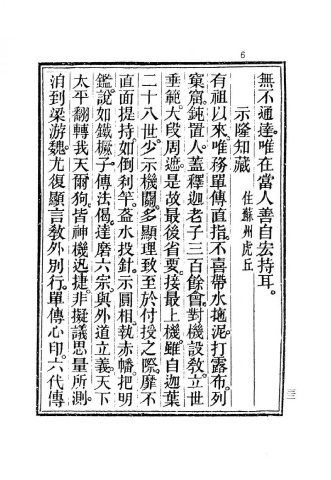 6
無不通達。唯在當人善自宏持耳。
示隆知藏 住蘇州虎丘
有祖以來。唯務單傳直指。不喜帶水拖泥。打露布。列
窠窟。鈍置人。蓋釋迦老子三百餘會。對機設敎。立世
垂範。大段周遮。是故最後省要。接最上機。雖自迦葉
二十八世。少示機關。多顯理致。至於付授之際。靡不
直面提持。如倒刹竿。盋水投針。示圓相。執赤幡。把明
鑑。說如鐵橛子。傳法偈。達磨六宗與外道立義。天下
太平。翻轉我天爾狗。皆神機迅捷。非擬議思量所測。
洎到梁游魏。尤復顯言敎外別行。單傳心印。六代傳